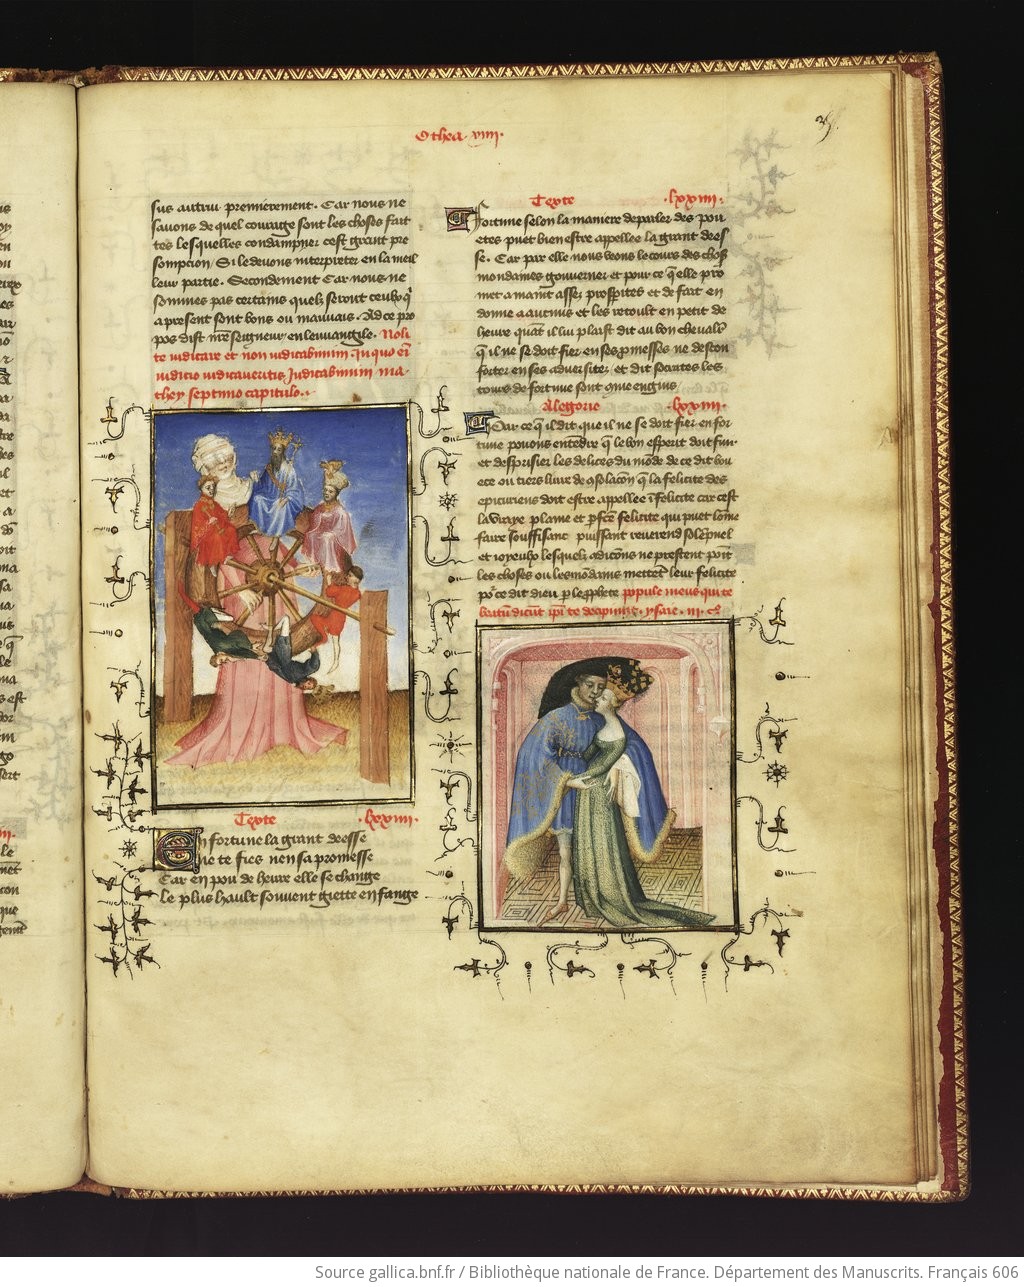 Othea · viiii ·
35.
sus autrui premierement. Car nous ne
sauons de quel courage sont les choses fait
tes lesquelles condampner cest grant pre
sompcion / Si le deuons interpreter en la meil
leur partie. Secondement Car nous ne
sommes pas certains quelz seront ceulx q̃
a present sont bons ou mauuais. Ad ce pro
pos dist nr̃e seigneur en leuuangile. Noli
te iudicare et non iudicabimini In quo eĩ
iudicio iudicaueritis Iudicabimini ma-
they septimo capitulo.
Texte · lxxiiii ·
En fortune la grant deesse
Ne te fies nen sa promesse
Car en pou de heure elle se change
Le plus hault souuent giette en fange
Texte · lxxiiii ·
Fortune selon la maniere de parler des pou
etes puet bien estre appellee la grant deef
se. Car par elle nous veons le cours des choses
mondaines gouuerner et pour ce q̃ elle pro
met a maint assez prosperites et de fait en
donne a aucuns et les retoult en petit de
heure quãt il lui plaist dit au bon cheualr̃
q̃ il ne se doit fier en ses p̱messes ne descon
forter en ses aduersitez et dit socrates les
tours de fortune sont q̃me engins
Alegorie · lxxiiii ·
Par ce q̃ il dit que il ne se doit fier en for
tune pouons entendre q̃ le bon esperit doit fuir
et despriser les delices du mõde de ce dit bou
ece ou tiers liure de ɔsolacõn q̃ la felicite des
epicuriens doit estre appellee ĩfelicite car cest
la vraye plaine et p̱fcẽ felicite qui puet lõme
faire souffisant puissant reuerend solẽpnel
et ioyeulx lesquelz ɔdicõns ne prestent point
les choses ou les mõdains mettẽt leur felicite
po᷑ ce dit dieu p̱ le p̃phete popule meus qui te
beatũ dicũt ipĩ te decipiũt. ysaie · iii · c̃
Source gallica.bnf.fr / Bibliothèque nationale de France. Département des Manuscrits. Français 606